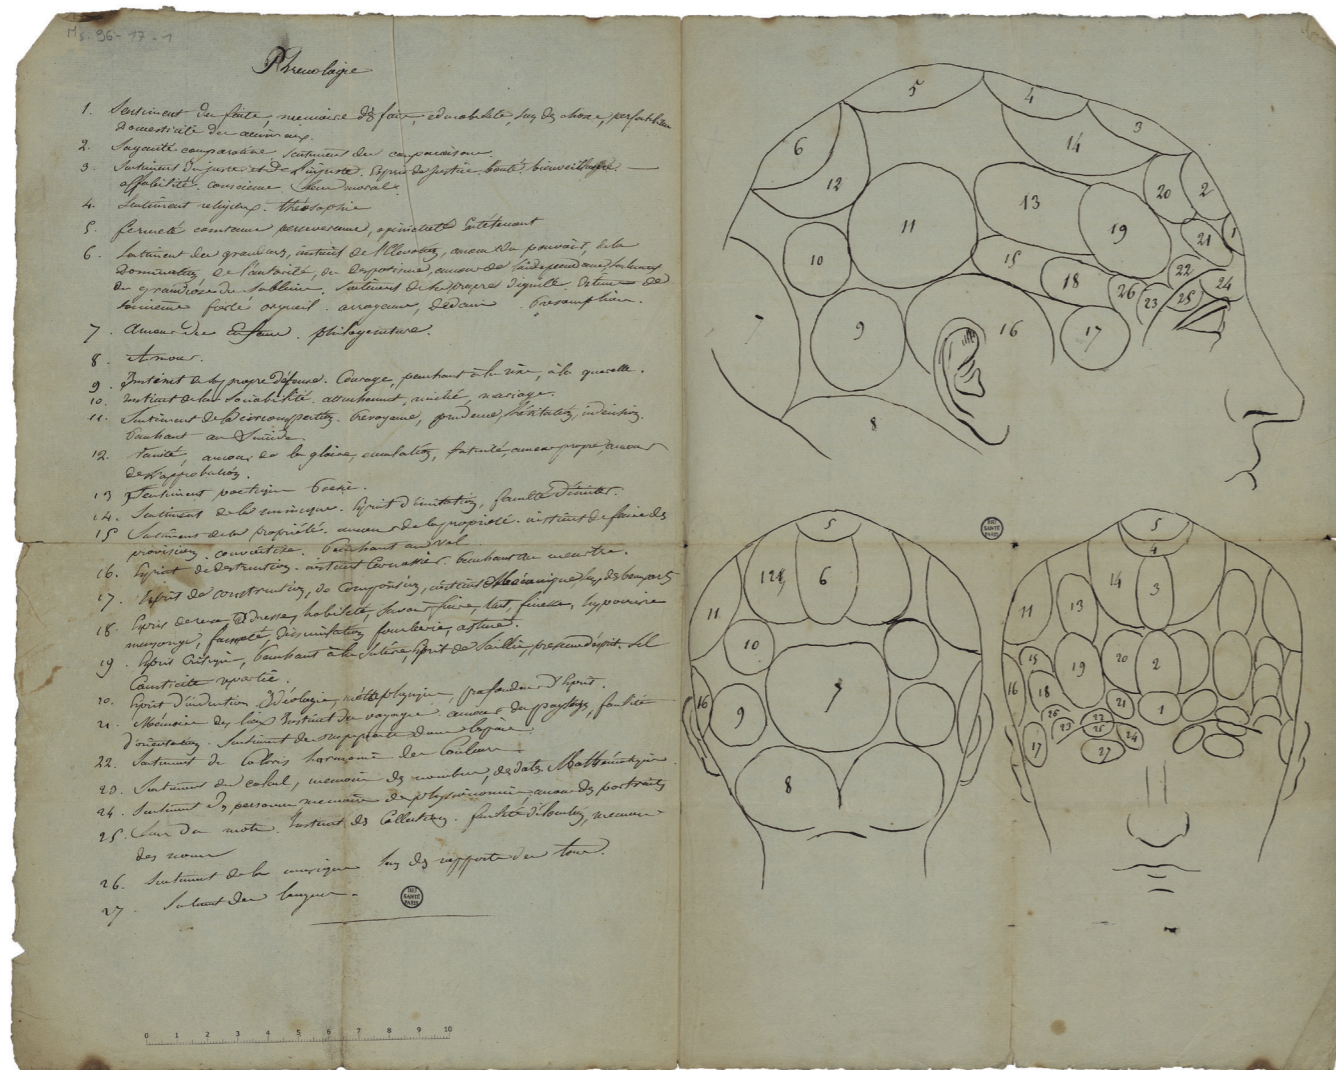 Ms. 96-17-1
Phrenologie
1. Sentiment des faits, memoire des faits, educabilité, sens des choses, perfectibilité
Domesticité des animaux.
2. Sagacité comparative sentiment des comparaisons
3. Sentiment du juste et de l'injuste. Esprit de justice. bonté. bienveillance
affabilité. conscience. Sens moral.
4. Sentiment religieux. théosophie
5. fermeté constance perseverance, opiniatreté Entêtement
6. Sentiment des grandeurs, instinct de l'Elevation, amour du pouvoir, de la
Domination, de l'autorité, du despotisme, amour de l'independance,
du grandiose du Sublime. Sentiment de sa propre dignité. Estime de
soi même fierté orgueil. arrogance, Dedain. Presomption.
7. Amour des Enfans. philogeniture.
8. Amour.
9. Instinct de la propre défense. Courage, penchant à la rixe, à la querelle.
10. Instinct de la sociabilité. attachement, amitié, mariage.
11. Sentiment de la circonspection. Prevoyance, prudence, hésitation, indecision,
Penchant au Suicide.
12. Vanité, amour de la gloire, emulation, fatuité, amour propre, amour
de l'approbation.
13 Sentiment poetique Poesie.
14. Sentiment de la mimique. Esprit d'imitation, faculté d'imiter.
15 Sentiment de la propriété. amour de la propriété. instinct de faire des
provisions. convoitise. Penchant au vol
16. Esprit de destruction. instinct Carnassier. Penchant au meurtre.
17. Esprit de construction, de Composition, instinct Mécanique, sens des beaux arts
18. Esprit de ruse, Adresse, habileté, savoir faire, tact, finesse, hypocrisie
mensonge, fausseté, dissimulation, fourberie, astuce.
19. Esprit Critique, Penchant à la Satire, Esprit de Saillie, Sel
Causticité repartie.
20. Esprit d'induction Idéologie, métaphysique, profondeur d'Esprit.
21. Mémoire des lieux Instinct des voyages amour du paysage, faculté
d'orientation. Sentiment des rapports dans l'espace.
22. Sentiment de Coloris harmonie des Couleurs
23. Sentiment du calcul, memoire des nombres, des dates Mathématiques.
24. Sentiment des personnes memoire des physionomies amour des portraits
25. Sens des mots. Instinct des Collections. faculté d'Elocution, memoire
des noms
26. Sentiment de la musique Sens des rapports des tons.
27. Sentiment des langues.
BIU
SANTÉ
PARIS
0 1 2 3 4 5 6 7 8 9 10
5 4 3
6 12 14 20 2
11 13 19 21 1
10 15 18 22 24
26 23 25
7 9 16 17
8
BIU
SANTÉ
PARIS
5
12 6
11 10
7
16 9
8
5
4
14 3
11 13
15 19 20 2
16 18 21 1
26 23 22
25 24
17 27